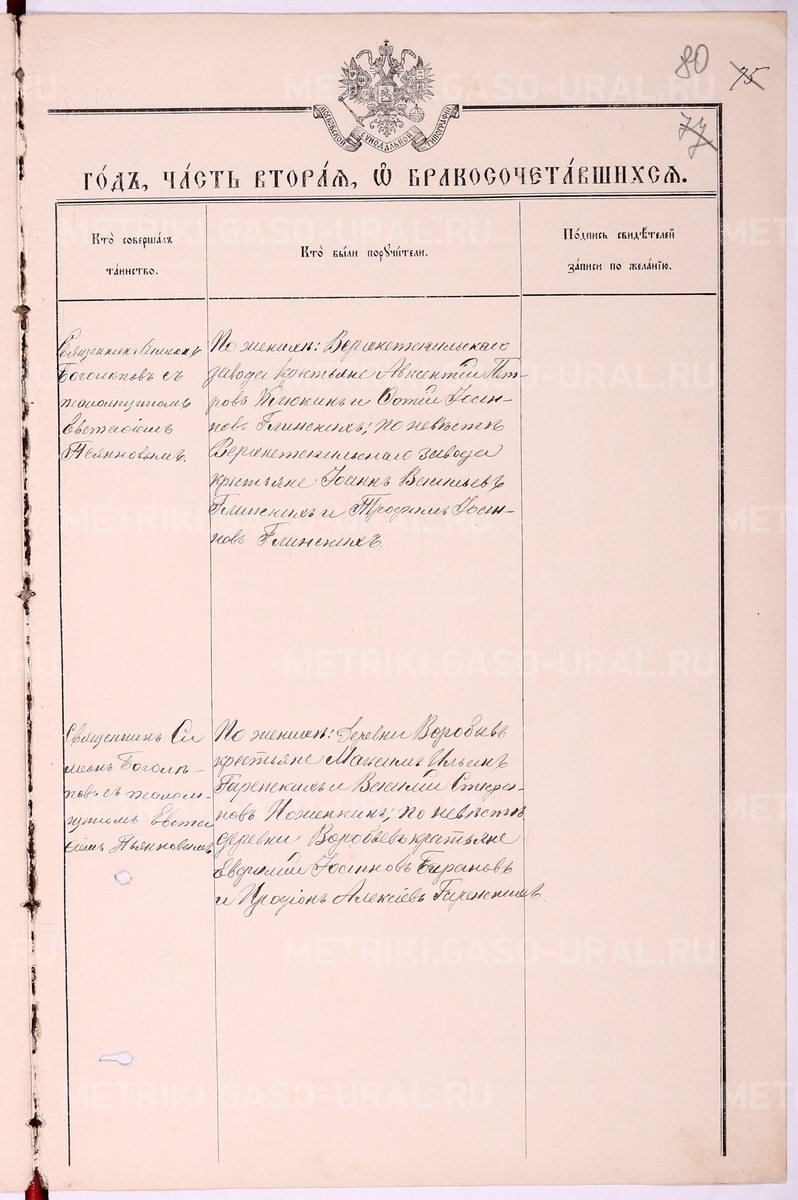 80
75
77
МОСКОВСКОЙ СѴНОДАЛЬНОЙ ТИПОГРАФІИ
ГО́ДЪ, ЧА́СТЬ ВТОРА́Я, Ѿ БРАКОСОЧЕТА́ВШИХСЯ.
Кто̀ соверша́лъ
та́инство.
Кто̀ бы́ли поручи́тели.
По́дпись свидѣ́телей
за́писи по жела́нію.
Священникъ Симеонъ
Боголѣповъ съ
псаломщикомъ
Евстафіемъ
Пьянковымъ.
По женихѣ: Верхнетагильскаго
завода крестьяне Авксентій Пет-
ровъ и Фотій Іоан-
новъ Глинскихъ; по невѣстѣ
Верхнетагильскаго завода
крестьяне Іоаннъ Васильевъ
Глинскихъ и Трофимъ Іоан-
новъ Глинскихъ.
Священникъ Си
меонъ Боголѣ-
повъ съ псалом-
щикомъ Евста
фіемъ Пьянковымъ
По женихѣ: деревни Воробьевъ
крестьяне Максимъ Ильинъ
Гаренскихъ и Василій Стефа-
новъ по невѣстѣ
деревни Воробьевъ крестьяне
Евфимій Іоанновъ Барановъ
и Иродіонъ Алексіевъ Гаренскихъ.
METRIKI.GASO-URAL.RU